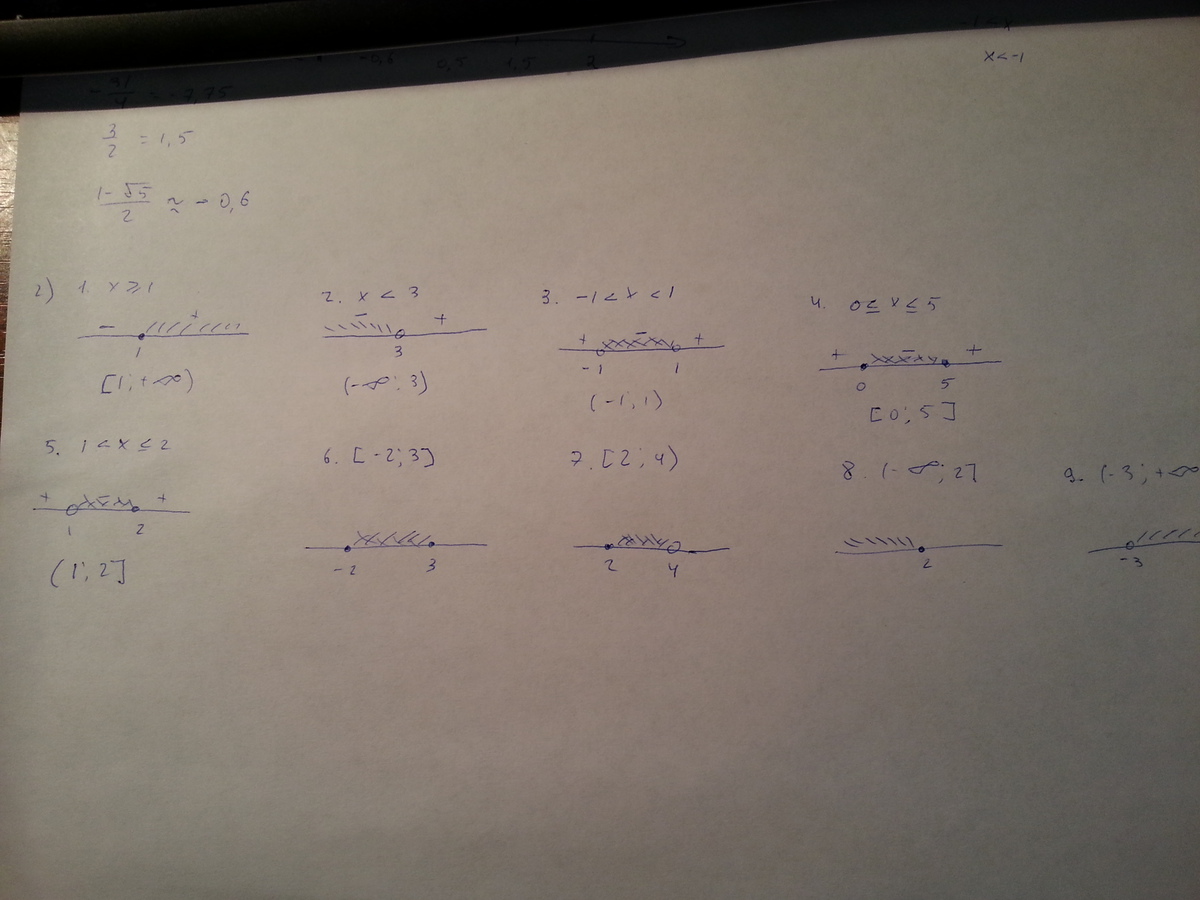 -0,6 0,5 1,5 2
x<-1
3/2 = 1,5
(1-√5)/2 ≈ -0,6
2) 1. x ≥ 1
- +
1
[1; +∞)
2. x < 3
- +
3
(-∞; 3)
3. -1 < x < 1
+ - +
-1 1
(-1; 1)
4. 0 ≤ x ≤ 5
+ - +
0 5
[0; 5]
5. 1 < x ≤ 2
+ - +
1 2
(1; 2]
6. [-2; 3]
-2 3
7. [2; 4)
2 4
8. (-∞; 2]
2
9. (-3; +∞
-3